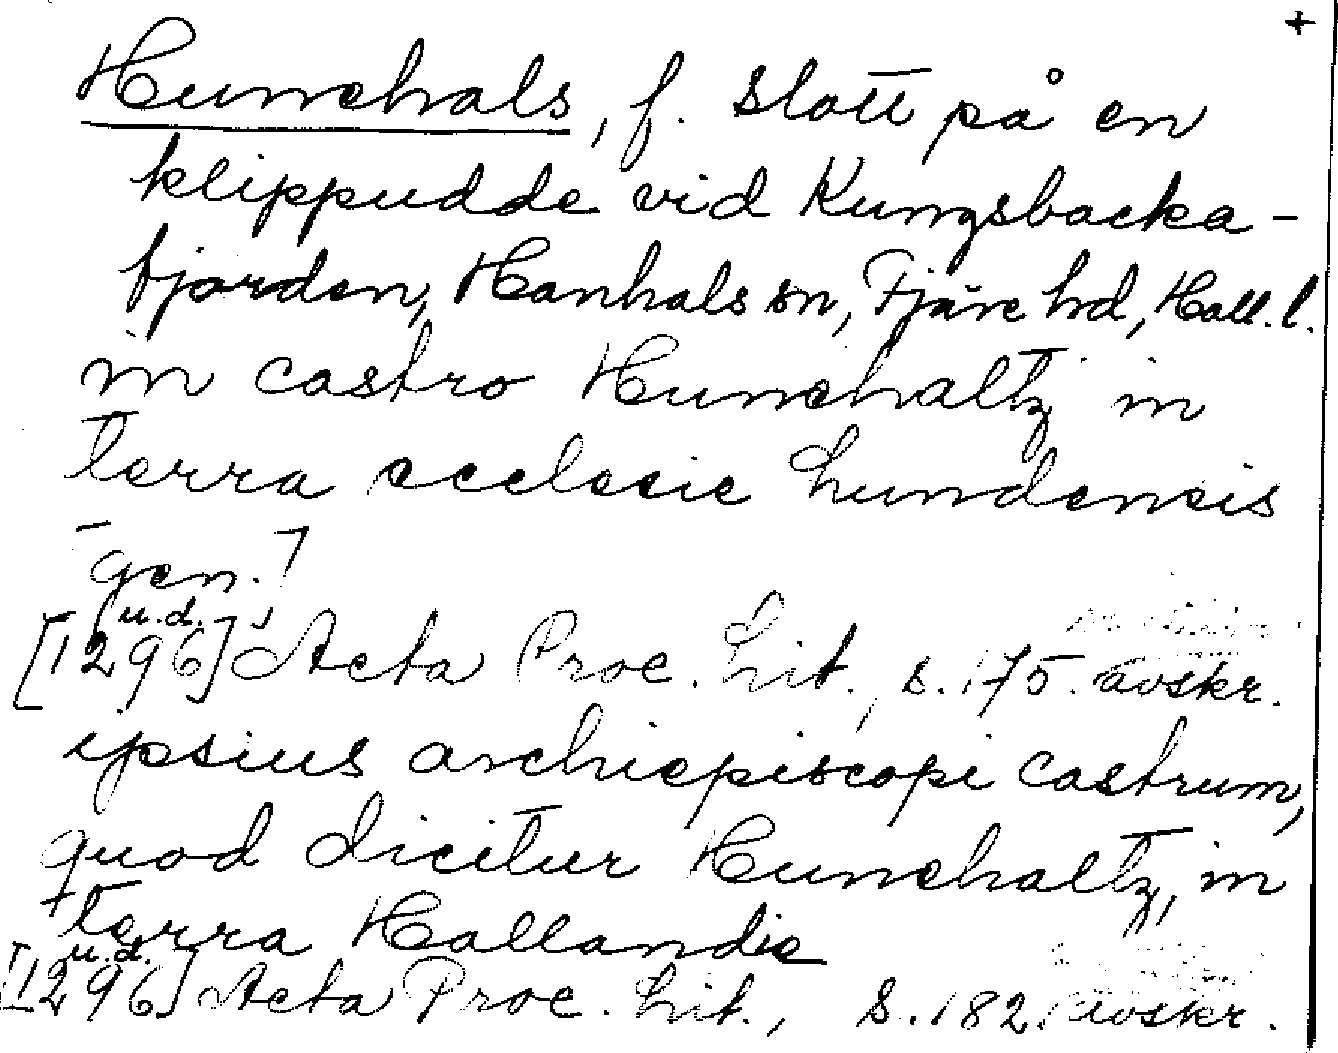 +
Hunehals, f. slott på en
klippudde vid Kungsbacka-
fjorden, Hanhals sn, Fjäre hd, Hall. l.
in castro Hunehaltz in
terra ecclesie Lundensis
gen.
[1296] u.d. Acta Proc. Lit., s. 175. avskr.
ipsius archiepiscopi castrum,
quod dicitur Hunehaltz, in
terra Hallandie
[1296] u.d. Acta Proc. Lit., s. 182. avskr.